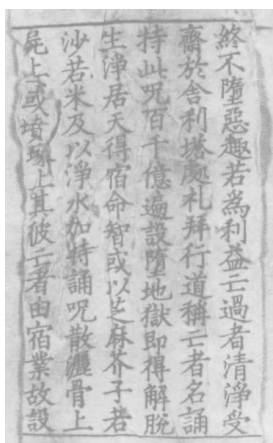 終不墮惡趣若為利益亡過者清淨受
齋於舍利塔處礼拜行道稱亡者名誦
持此呪百千億遍設墮地獄即得解脫
生淨居天得宿命智或以芝麻芥子若
沙若米及以淨水加持誦呪散灑骨上
屍上或墳塚上其彼亡者由宿業故設